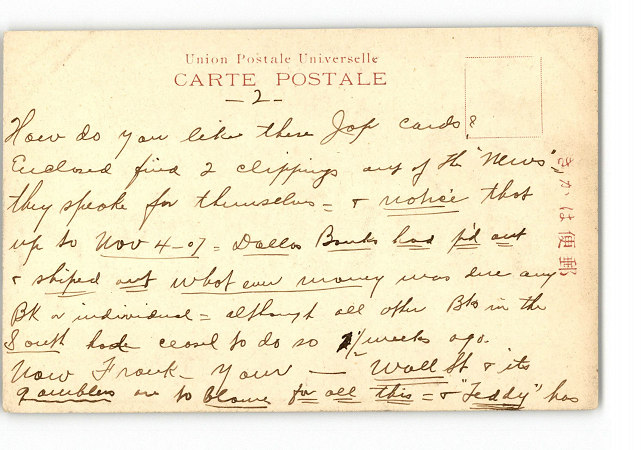 Union Postale Universelle
CARTE POSTALE
- 2 -
How do you like these Jap cards?
Enclosed find 2 clippings out of the "News",
they speake for themselves = & notice that
up to Nov 4-07 = Dallas Banks had p'd out
& shiped out what ever money was due any
BK or individual = although all other Bks in the
South had ceased to do so weeks ago.
Now Frank - Your - Wall St & its
gamblers are to blame for all this = & "Teddy" has
郵便はかき